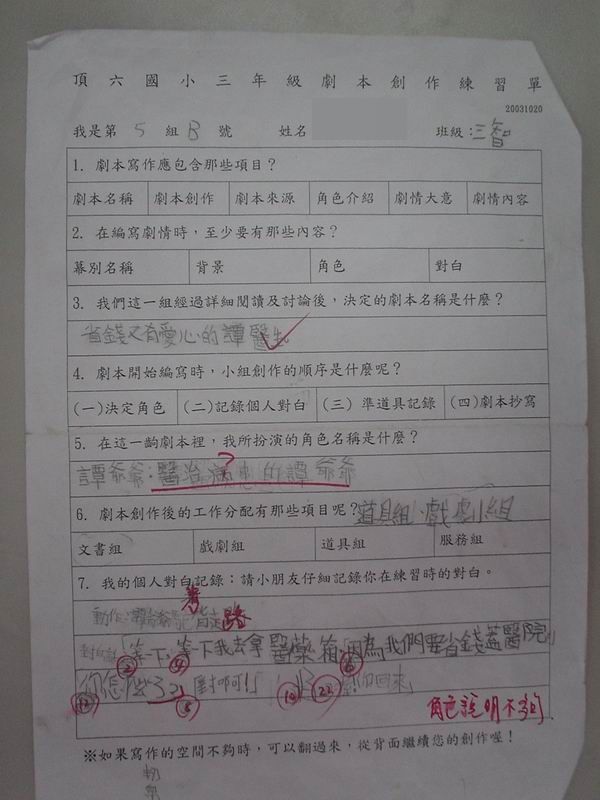 頂六國小三年級劇本創作練習單
20031020
我是第 5 組 B 號 姓名 班級：三智
1. 劇本寫作應包含那些項目？
劇本名稱 劇本創作 劇本來源 角色介紹 劇情大意 劇情內容
2. 在編寫劇情時，至少要有那些內容？
幕別名稱 背景 角色 對白
3. 我們這一組經過詳細閱讀及討論後，決定的劇本名稱是什麼？
省錢又有愛心的譚醫生
4. 劇本開始編寫時，小組創作的順序是什麼呢？
(一)決定角色 (二)記錄個人對白 (三) 準道具記錄 (四)劇本抄寫
5. 在這一齣劇本裡，我所扮演的角色名稱是什麼？
譚爺爺：醫治 的譚爺爺
?
6. 劇本創作後的工作分配有那些項目呢？道具組、戲劇組
文書組 戲劇組 道具組 服務組
7. 我的個人對白記錄：請小朋友仔細記錄你在練習時的對白。
著
動作： 背走路
「等一下，等一下我去拿醫藥箱，因為我們要省錢蓋醫院」
② 
你怎麼了？ 啊！ 你回來
角色說明不夠
※如果寫作的空間不夠時，可以翻過來，從背面繼續您的創作喔！